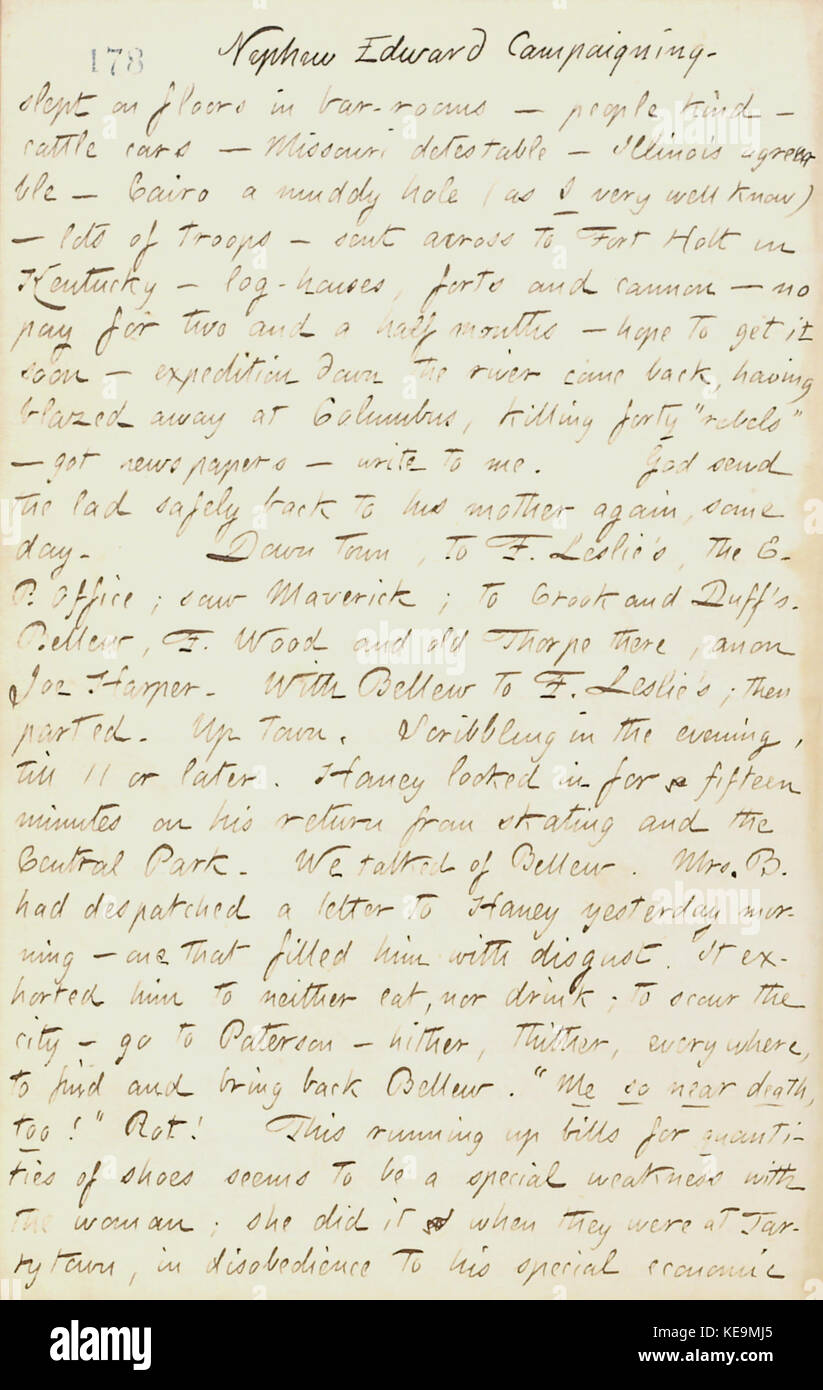 178 Nephew Edward Campaigning.
slept on floors in bar-rooms — people kind —
cattle cars — Missouri detestable — Illinois agreea
ble — Cairo a muddy hole (as I very well know)
— lots of troops — sent across to Fort Holt in
Kentucky — log-houses, forts and cannon — no
pay for two and a half months — hope to get it
soon — expedition down the river come back, having
blazed away at Columbus, killing forty "rebels"
— got newspapers — write to me. God send
the lad safely back to his mother again, some
day. Down town, to F. Leslie's, the E.
P. Office; saw Maverick; to Crook and Duff's.
Bellew, F. Wood and old Thorpe there, anon
Joe Harper. With Bellew to F. Leslie's; then
parted. Up town. Scribbling in the evening,
till 11 or later. Haney looked in for fifteen
minutes on his return from skating and the
Central Park. We talked of Bellew. Mrs. B.
had despatched a letter to Haney yesterday mor-
ning — one that filled him with disgust. It ex-
horted him to neither eat, nor drink; to scour the
city — go to Paterson — hither, thither, everywhere,
to find and bring back Bellew. "Me so near death,
too!" Rot! This running up bills for quanti-
ties of shoes seems to be a special weakness with
the woman; she did it when they were at Tar-
rytown, in disobedience to his special economic
alamy
Image ID: KE9MJ5
www.alamy.com